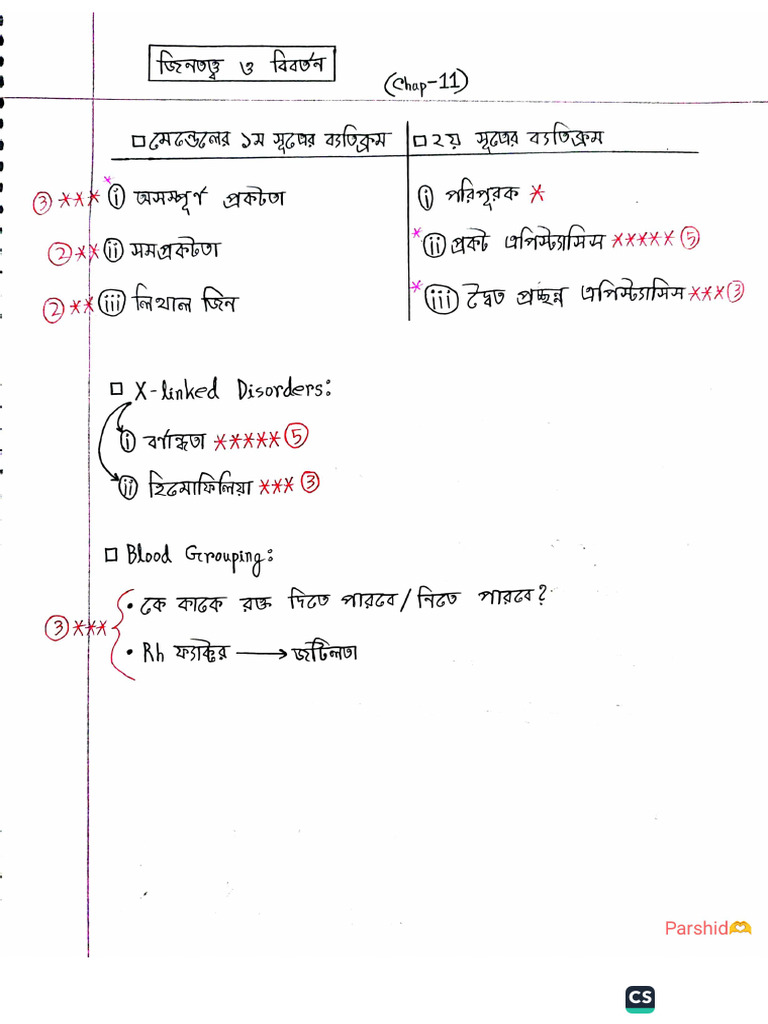 জিনতত্ত্ব ও বিবর্তন
(Chap-11)
□ মেন্ডেলের ১ম সূত্রের ব্যতিক্রম
③ *** * ⓘ অসম্পূর্ণ প্রকটতা
② ** ⓘⓘ সমপ্রকটতা
② ** ⓘⓘⓘ লিথাল জিন
□ ২য় সূত্রের ব্যতিক্রম
ⓘ পরিপূরক *
* ⓘⓘ প্রকট এপিস্ট্যাসিস ***** ⑤
* ⓘⓘⓘ দ্বৈত প্রচ্ছন্ন এপিস্ট্যাসিস *** ③
□ X-linked Disorders:
ⓘ বর্ণান্ধতা ***** ⑤
ⓘⓘ হিমোফিলিয়া *** ③
□ Blood Grouping:
③ ***
• কে কাকে রক্ত দিতে পারবে/নিতে পারবে?
• Rh ফ্যাক্টর → জটিলতা
Parshid🫶
CS